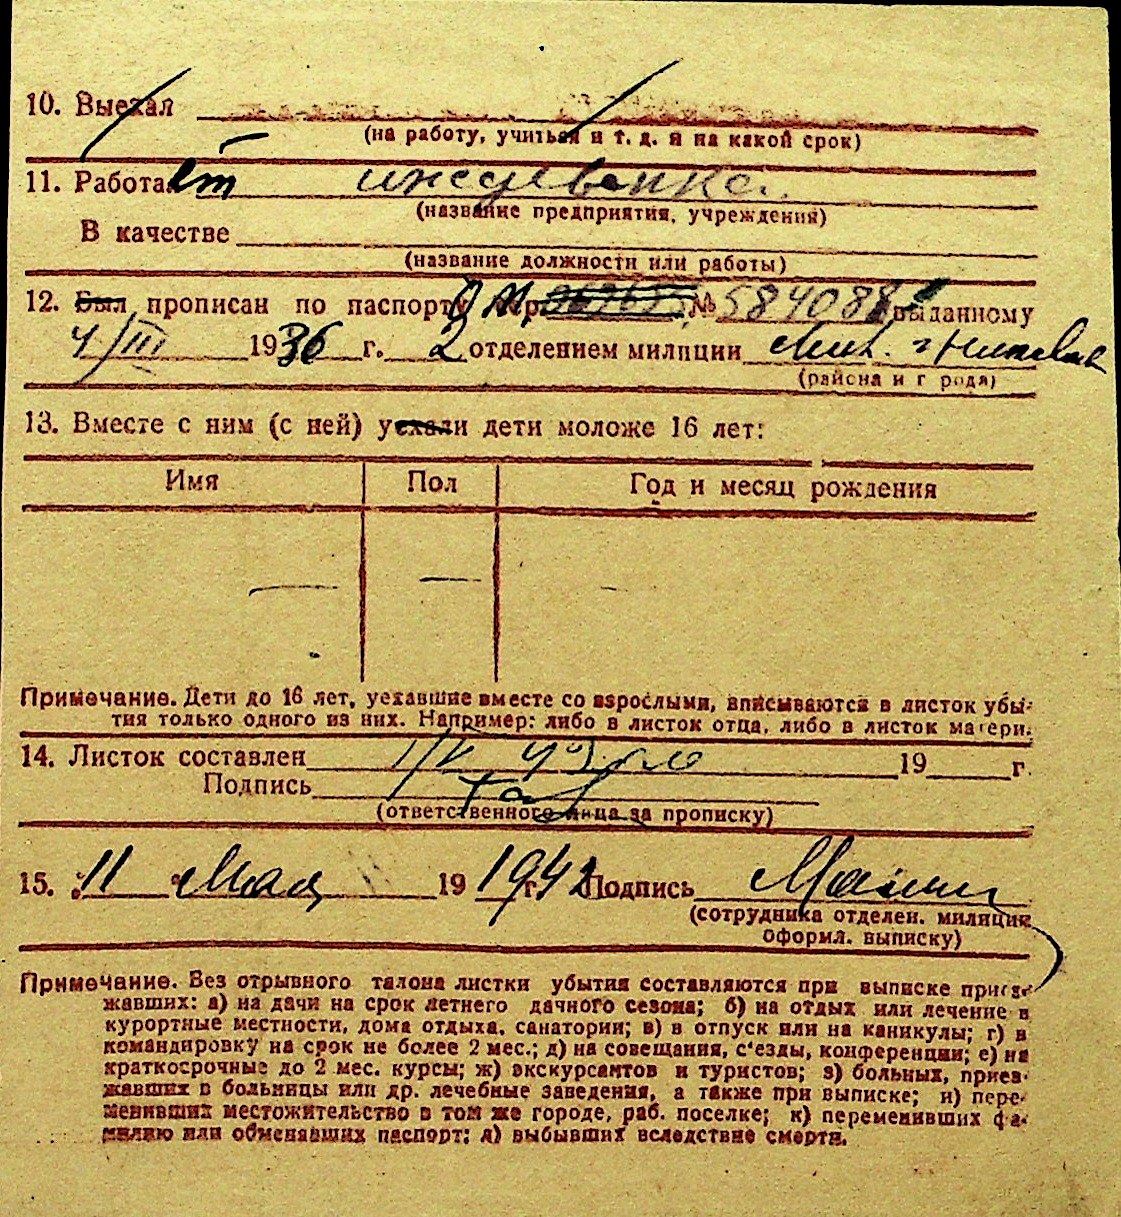 10. Выехал
(на работу, учиться и т. д. и на какой срок)
11. Работает иждевенка.
(название предприятия, учреждения)
В качестве
(название должности или работы)
12. Был прописан по паспорту № 584088 выданному
4/III 1936 г. 2 отделением милиции
(района и города)
13. Вместе с ним (с ней) уехали дети моложе 16 лет:
Имя Пол Год и месяц рождения
— — —
Примечание. Дети до 16 лет, уехавшие вместе со взрослыми, вписываются в листок убы-
тия только одного из них. Например: либо в листок отца, либо в листок матери.
14. Листок составлен 19 г.
Подпись
(ответственного лица за прописку)
15. „11“ Мая 19 1942 г. Подпись
(сотрудника отделен. милиции
оформл. выписку)
Примечание. Без отрывного талона листки убытия составляются при выписке приез-
жавших: а) на дачи на срок летнего дачного сезона; б) на отдых или лечение в
курортные местности, дома отдыха, санатории; в) в отпуск или на каникулы; г) в
командировку на срок не более 2 мес.; д) на совещания, с'езды, конференции; е) на
краткосрочные до 2 мес. курсы; ж) экскурсантов и туристов; з) больных, приез-
жавших в больницы или др. лечебные заведения, а также при выписке; и) пере-
менивших местожительство в том же городе, раб. поселке; к) переменивших фа-
милию или обменавших паспорт; л) выбывших вследствие смерти.